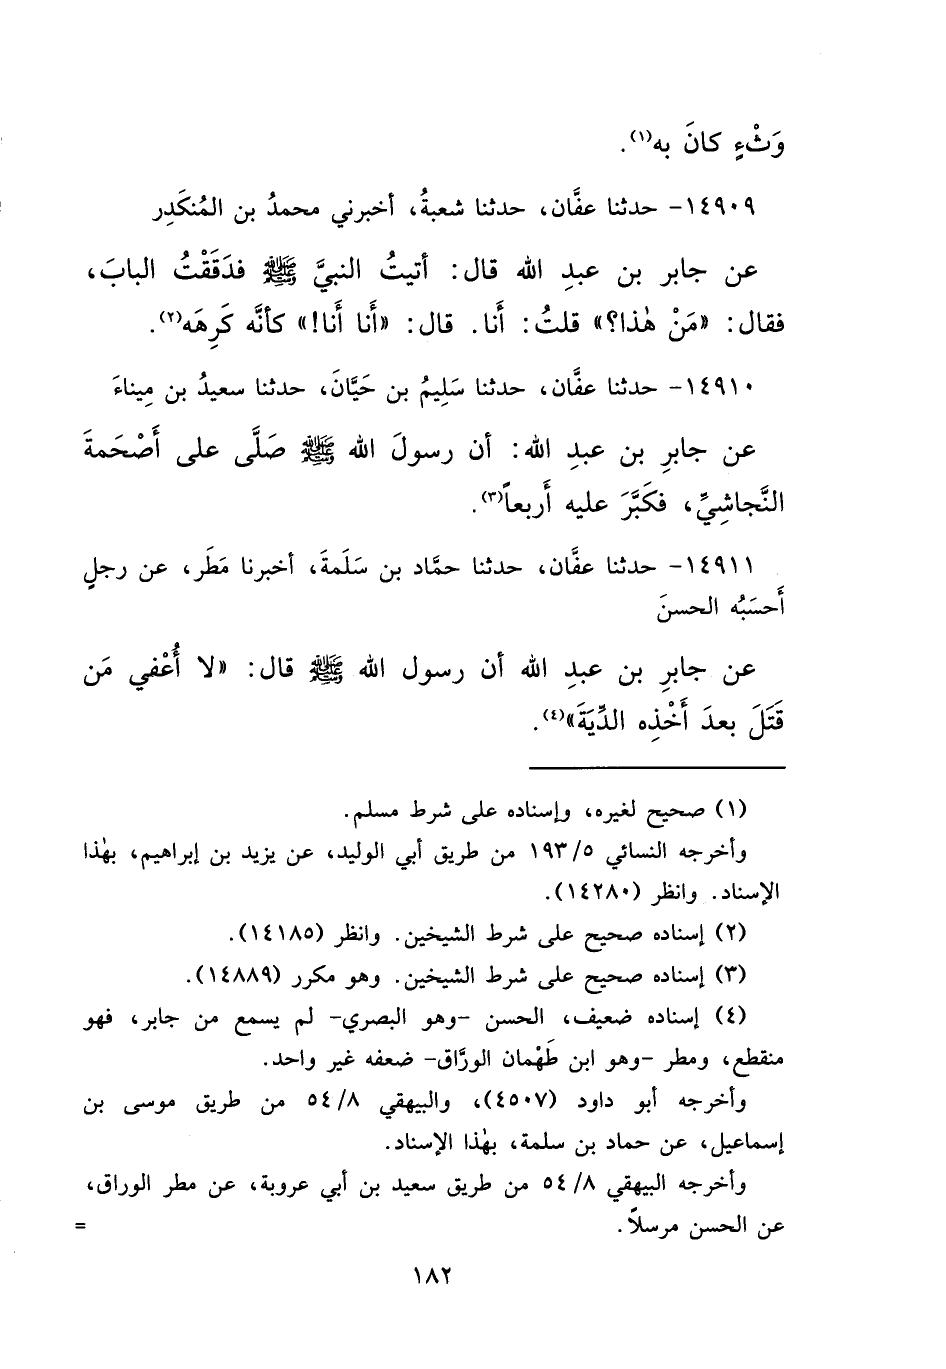 وَثْءٍ كانَ به(١).
١٤٩٠٩- حدثنا عفَّان، حدثنا شعبةُ، أخبرني محمدُ بن المُنكَدِر
عن جابر بن عبدِ الله قال: أتيتُ النبيَّ ﷺ فدَقَقْتُ البابَ،
فقال: «مَنْ هٰذا؟» قلتُ: أَنا. قال: «أَنا أَنا!» كأنَّه كَرِهَه(٢).
١٤٩١٠- حدثنا عفَّان، حدثنا سَلِيمُ بن حَيَّانَ، حدثنا سعيدُ بن مِيناءَ
عن جابرِ بن عبدِ الله: أن رسولَ الله ﷺ صَلَّى على أَصْحَمةَ
النَّجاشِيِّ، فكَبَّرَ عليه أَربعاً(٣).
١٤٩١١- حدثنا عفَّان، حدثنا حمَّاد بن سَلَمةَ، أخبرنا مَطَر، عن رجلٍ
أَحسَبُه الحسنَ
عن جابرِ بن عبدِ الله أن رسول الله ﷺ قال: «لا أُعْفي مَن
قَتَلَ بعدَ أَخْذِه الدِّيَةَ»(٤).
(١) صحيح لغيره، وإسناده على شرط مسلم.
وأخرجه النسائي ١٩٣/٥ من طريق أبي الوليد، عن يزيد بن إبراهيم، بهٰذا
الإسناد. وانظر (١٤٢٨٠).
(٢) إسناده صحيح على شرط الشيخين. وانظر (١٤١٨٥).
(٣) إسناده صحيح على شرط الشيخين. وهو مكرر (١٤٨٨٩).
(٤) إسناده ضعيف، الحسن -وهو البصري- لم يسمع من جابر، فهو
منقطع، ومطر -وهو ابن طَهْمان الورَّاق- ضعفه غير واحد.
وأخرجه أبو داود (٤٥٠٧)، والبيهقي ٥٤/٨ من طريق موسى بن
إسماعيل، عن حماد بن سلمة، بهٰذا الإسناد.
وأخرجه البيهقي ٥٤/٨ من طريق سعيد بن أبي عروبة، عن مطر الوراق،
عن الحسن مرسلاً. =
١٨٢